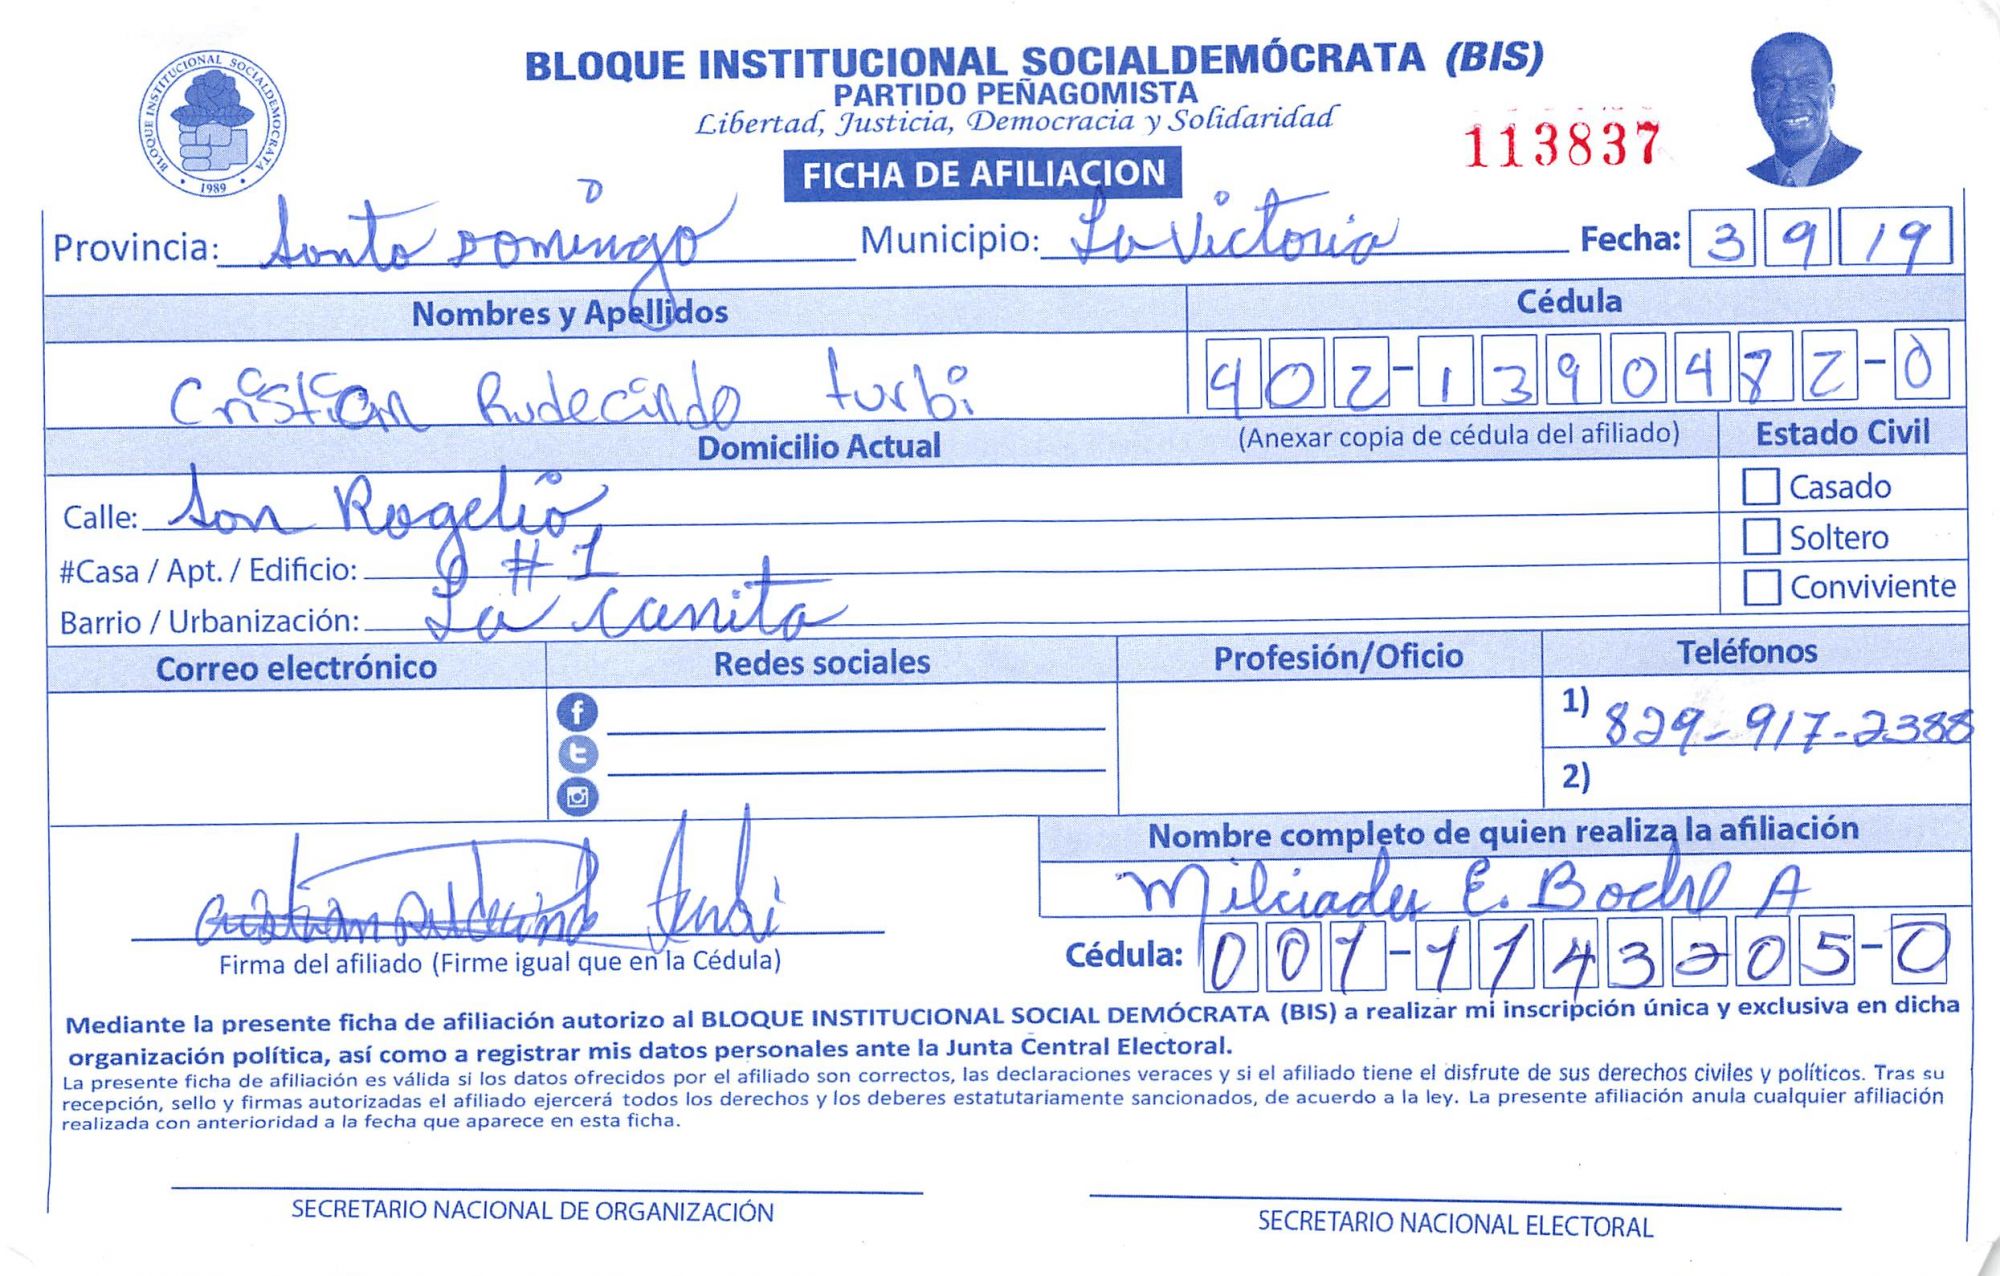 BLOQUE INSTITUCIONAL SOCIALDEMÓCRATA (BIS)
PARTIDO PEÑAGOMISTA
Libertad, Justicia, Democracia y Solidaridad
BLOQUE INSTITUCIONAL SOCIALDEMOCRATA
1989
113837
FICHA DE AFILIACION
Provincia: Santo Domingo Municipio: La Victoria Fecha: 3 9 19
Nombres y Apellidos Cédula
Cristian Rudecindo turbi 402-1390482-0
Domicilio Actual (Anexar copia de cédula del afiliado) Estado Civil
Calle: San Rogelio Casado
#Casa / Apt. / Edificio: #1 Soltero
Barrio / Urbanización: La canita Conviviente
Correo electrónico Redes sociales Profesión/Oficio Teléfonos
1) 829-917-2388
2)
Nombre completo de quien realiza la afiliación
Milciades E. A
Cédula: 001-1143205-0
Firma del afiliado (Firme igual que en la Cédula)
Mediante la presente ficha de afiliación autorizo al BLOQUE INSTITUCIONAL SOCIAL DEMÓCRATA (BIS) a realizar mi inscripción única y exclusiva en dicha
organización política, así como a registrar mis datos personales ante la Junta Central Electoral.
La presente ficha de afiliación es válida si los datos ofrecidos por el afiliado son correctos, las declaraciones veraces y si el afiliado tiene el disfrute de sus derechos civiles y políticos. Tras su
recepción, sello y firmas autorizadas el afiliado ejercerá todos los derechos y los deberes estatutariamente sancionados, de acuerdo a la ley. La presente afiliación anula cualquier afiliación
realizada con anterioridad a la fecha que aparece en esta ficha.
SECRETARIO NACIONAL DE ORGANIZACIÓN
SECRETARIO NACIONAL ELECTORAL